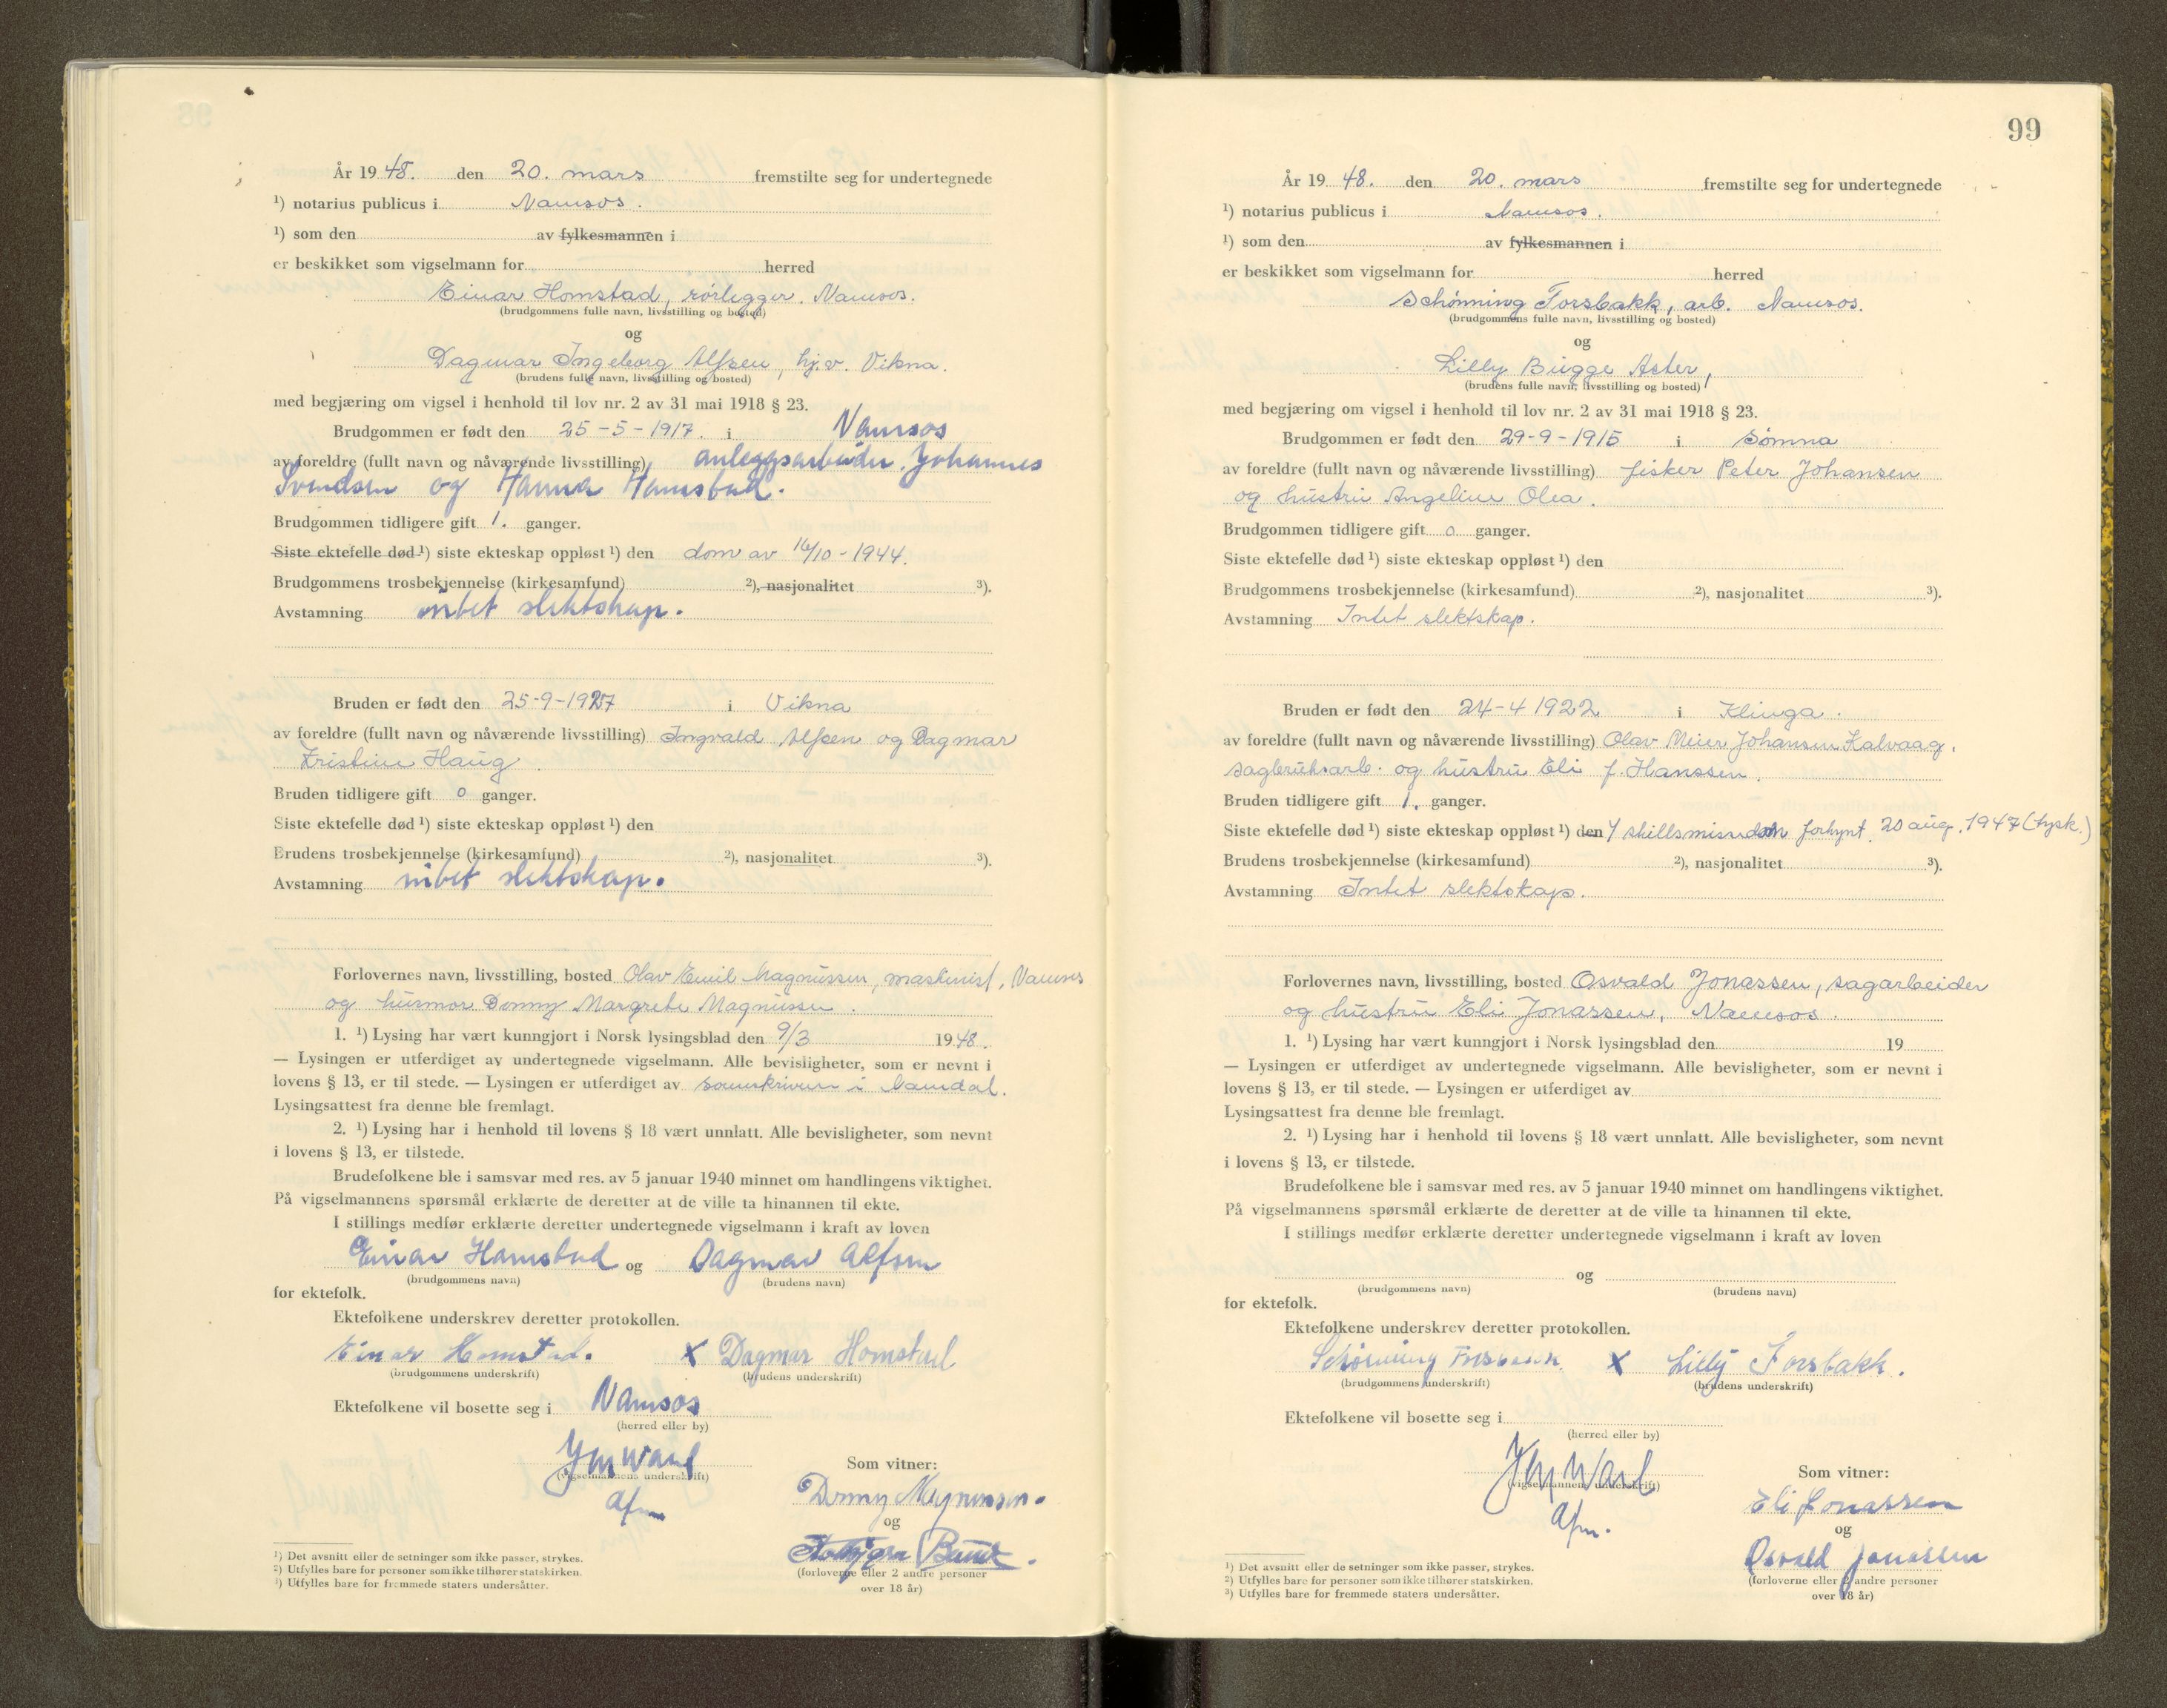 År 1948. den 20. mars fremstilte seg for undertegnede
¹) notarius publicus i Namsos.
¹) som den av fylkesmannen i
er beskikket som vigselmann for herred
Einar Homstad, rørlegger, Namsos.
(brudgommens fulle navn, livsstilling og bosted)
og
Dagmar Ingeborg Alfsen, hj.v. Vikna.
(brudens fulle navn, livsstilling og bosted)
med begjæring om vigsel i henhold til lov nr. 2 av 31 mai 1918 § 23.
Brudgommen er født den 25-5-1917. i Namsos
av foreldre (fullt navn og nåværende livsstilling) anleggsarbeider Johannes
Svendsen og Hanna Homstad.
Brudgommen tidligere gift 1. ganger.
Siste ektefelle død ¹) siste ekteskap oppløst ¹) den dom av 16/10-1944.
Brudgommens trosbekjennelse (kirkesamfund) ²), nasjonalitet ³).
Avstamning intet slektskap.
Bruden er født den 25-9-1927 i Vikna
av foreldre (fullt navn og nåværende livsstilling) Ingvald Alfsen og Dagmar
Kristine Haug.
Bruden tidligere gift 0 ganger.
Siste ektefelle død ¹) siste ekteskap oppløst ¹) den
Brudens trosbekjennelse (kirkesamfund) ²), nasjonalitet ³).
Avstamning intet slektskap.
Forlovernes navn, livsstilling, bosted Olav Emil Magnussen, maskinist, Namsos
og husmor Dønny Margrete Magnussen.
1. ¹) Lysing har vært kunngjort i Norsk lysingsblad den 9/3 1948.
— Lysingen er utferdiget av undertegnede vigselmann. Alle bevisligheter, som er nevnt i
lovens § 13, er til stede. — Lysingen er utferdiget av sorenskriveren i Namdal.
Lysingsattest fra denne ble fremlagt.
2. ¹) Lysing har i henhold til lovens § 18 vært unnlatt. Alle bevisligheter, som nevnt
i lovens § 13, er tilstede.
Brudefolkene ble i samsvar med res. av 5 januar 1940 minnet om handlingens viktighet.
På vigselmannens spørsmål erklærte de deretter at de ville ta hinannen til ekte.
I stillings medfør erklærte deretter undertegnede vigselmann i kraft av loven
Einar Homstad og Dagmar Alfsen
(brudgommens navn) (brudens navn)
for ektefolk.
Ektefolkene underskrev deretter protokollen.
Einar Homstad. x Dagmar Homstad
(brudgommens underskrift) (brudens underskrift)
Ektefolkene vil bosette seg i Namsos
(herred eller by)
(vigselmannens underskrift)
afm
Som vitner:
Dønny Magnussen.
og
(forloverne eller 2 andre personer
over 18 år)
¹) Det avsnitt eller de setninger som ikke passer, strykes.
²) Utfylles bare for personer som ikke tilhører statskirken.
³) Utfylles bare for fremmede staters undersåtter.
99
År 1948. den 20. mars fremstilte seg for undertegnede
¹) notarius publicus i Namsos.
¹) som den av fylkesmannen i
er beskikket som vigselmann for herred
Schønning Forsbakk, arb. Namsos.
(brudgommens fulle navn, livsstilling og bosted)
og
Lilly Brigge Aster,
(brudens fulle navn, livsstilling og bosted)
med begjæring om vigsel i henhold til lov nr. 2 av 31 mai 1918 § 23.
Brudgommen er født den 29-9-1915 i Sømna
av foreldre (fullt navn og nåværende livsstilling) fisker Peter Johansen
og hustru Angeline Olea.
Brudgommen tidligere gift 0 ganger.
Siste ektefelle død ¹) siste ekteskap oppløst ¹) den
Brudgommens trosbekjennelse (kirkesamfund) ²), nasjonalitet ³).
Avstamning Intet slektskap.
Bruden er født den 24-4 1922 i Klinga.
av foreldre (fullt navn og nåværende livsstilling) Olav Meier Johansen Kalvaag,
sagbruksarb. og hustru Eli J. Hanssen.
Bruden tidligere gift 1. ganger.
Siste ektefelle død ¹) siste ekteskap oppløst ¹) den skillsmissedom forkynt 20 aug. 1947 (tysk.)
Brudens trosbekjennelse (kirkesamfund) ²), nasjonalitet ³).
Avstamning Intet slektskap.
Forlovernes navn, livsstilling, bosted Osvald Jonassen, sagarbeider
og hustru Eli Jonassen, Namsos.
1. ¹) Lysing har vært kunngjort i Norsk lysingsblad den 19
— Lysingen er utferdiget av undertegnede vigselmann. Alle bevisligheter, som er nevnt i
lovens § 13, er til stede. — Lysingen er utferdiget av
Lysingsattest fra denne ble fremlagt.
2. ¹) Lysing har i henhold til lovens § 18 vært unnlatt. Alle bevisligheter, som nevnt
i lovens § 13, er tilstede.
Brudefolkene ble i samsvar med res. av 5 januar 1940 minnet om handlingens viktighet.
På vigselmannens spørsmål erklærte de deretter at de ville ta hinannen til ekte.
I stillings medfør erklærte deretter undertegnede vigselmann i kraft av loven
og
(brudgommens navn) (brudens navn)
for ektefolk.
Ektefolkene underskrev deretter protokollen.
Schønning Forsbakk x Lilly Forsbakk.
(brudgommens underskrift) (brudens underskrift)
Ektefolkene vil bosette seg i
(herred eller by)
(vigselmannens underskrift)
afm.
Som vitner:
Eli Jonassen
og
Osvald Jonassen
(forloverne eller 2 andre personer
over 18 år)
¹) Det avsnitt eller de setninger som ikke passer, strykes.
²) Utfylles bare for personer som ikke tilhører statskirken.
³) Utfylles bare for fremmede staters undersåtter.